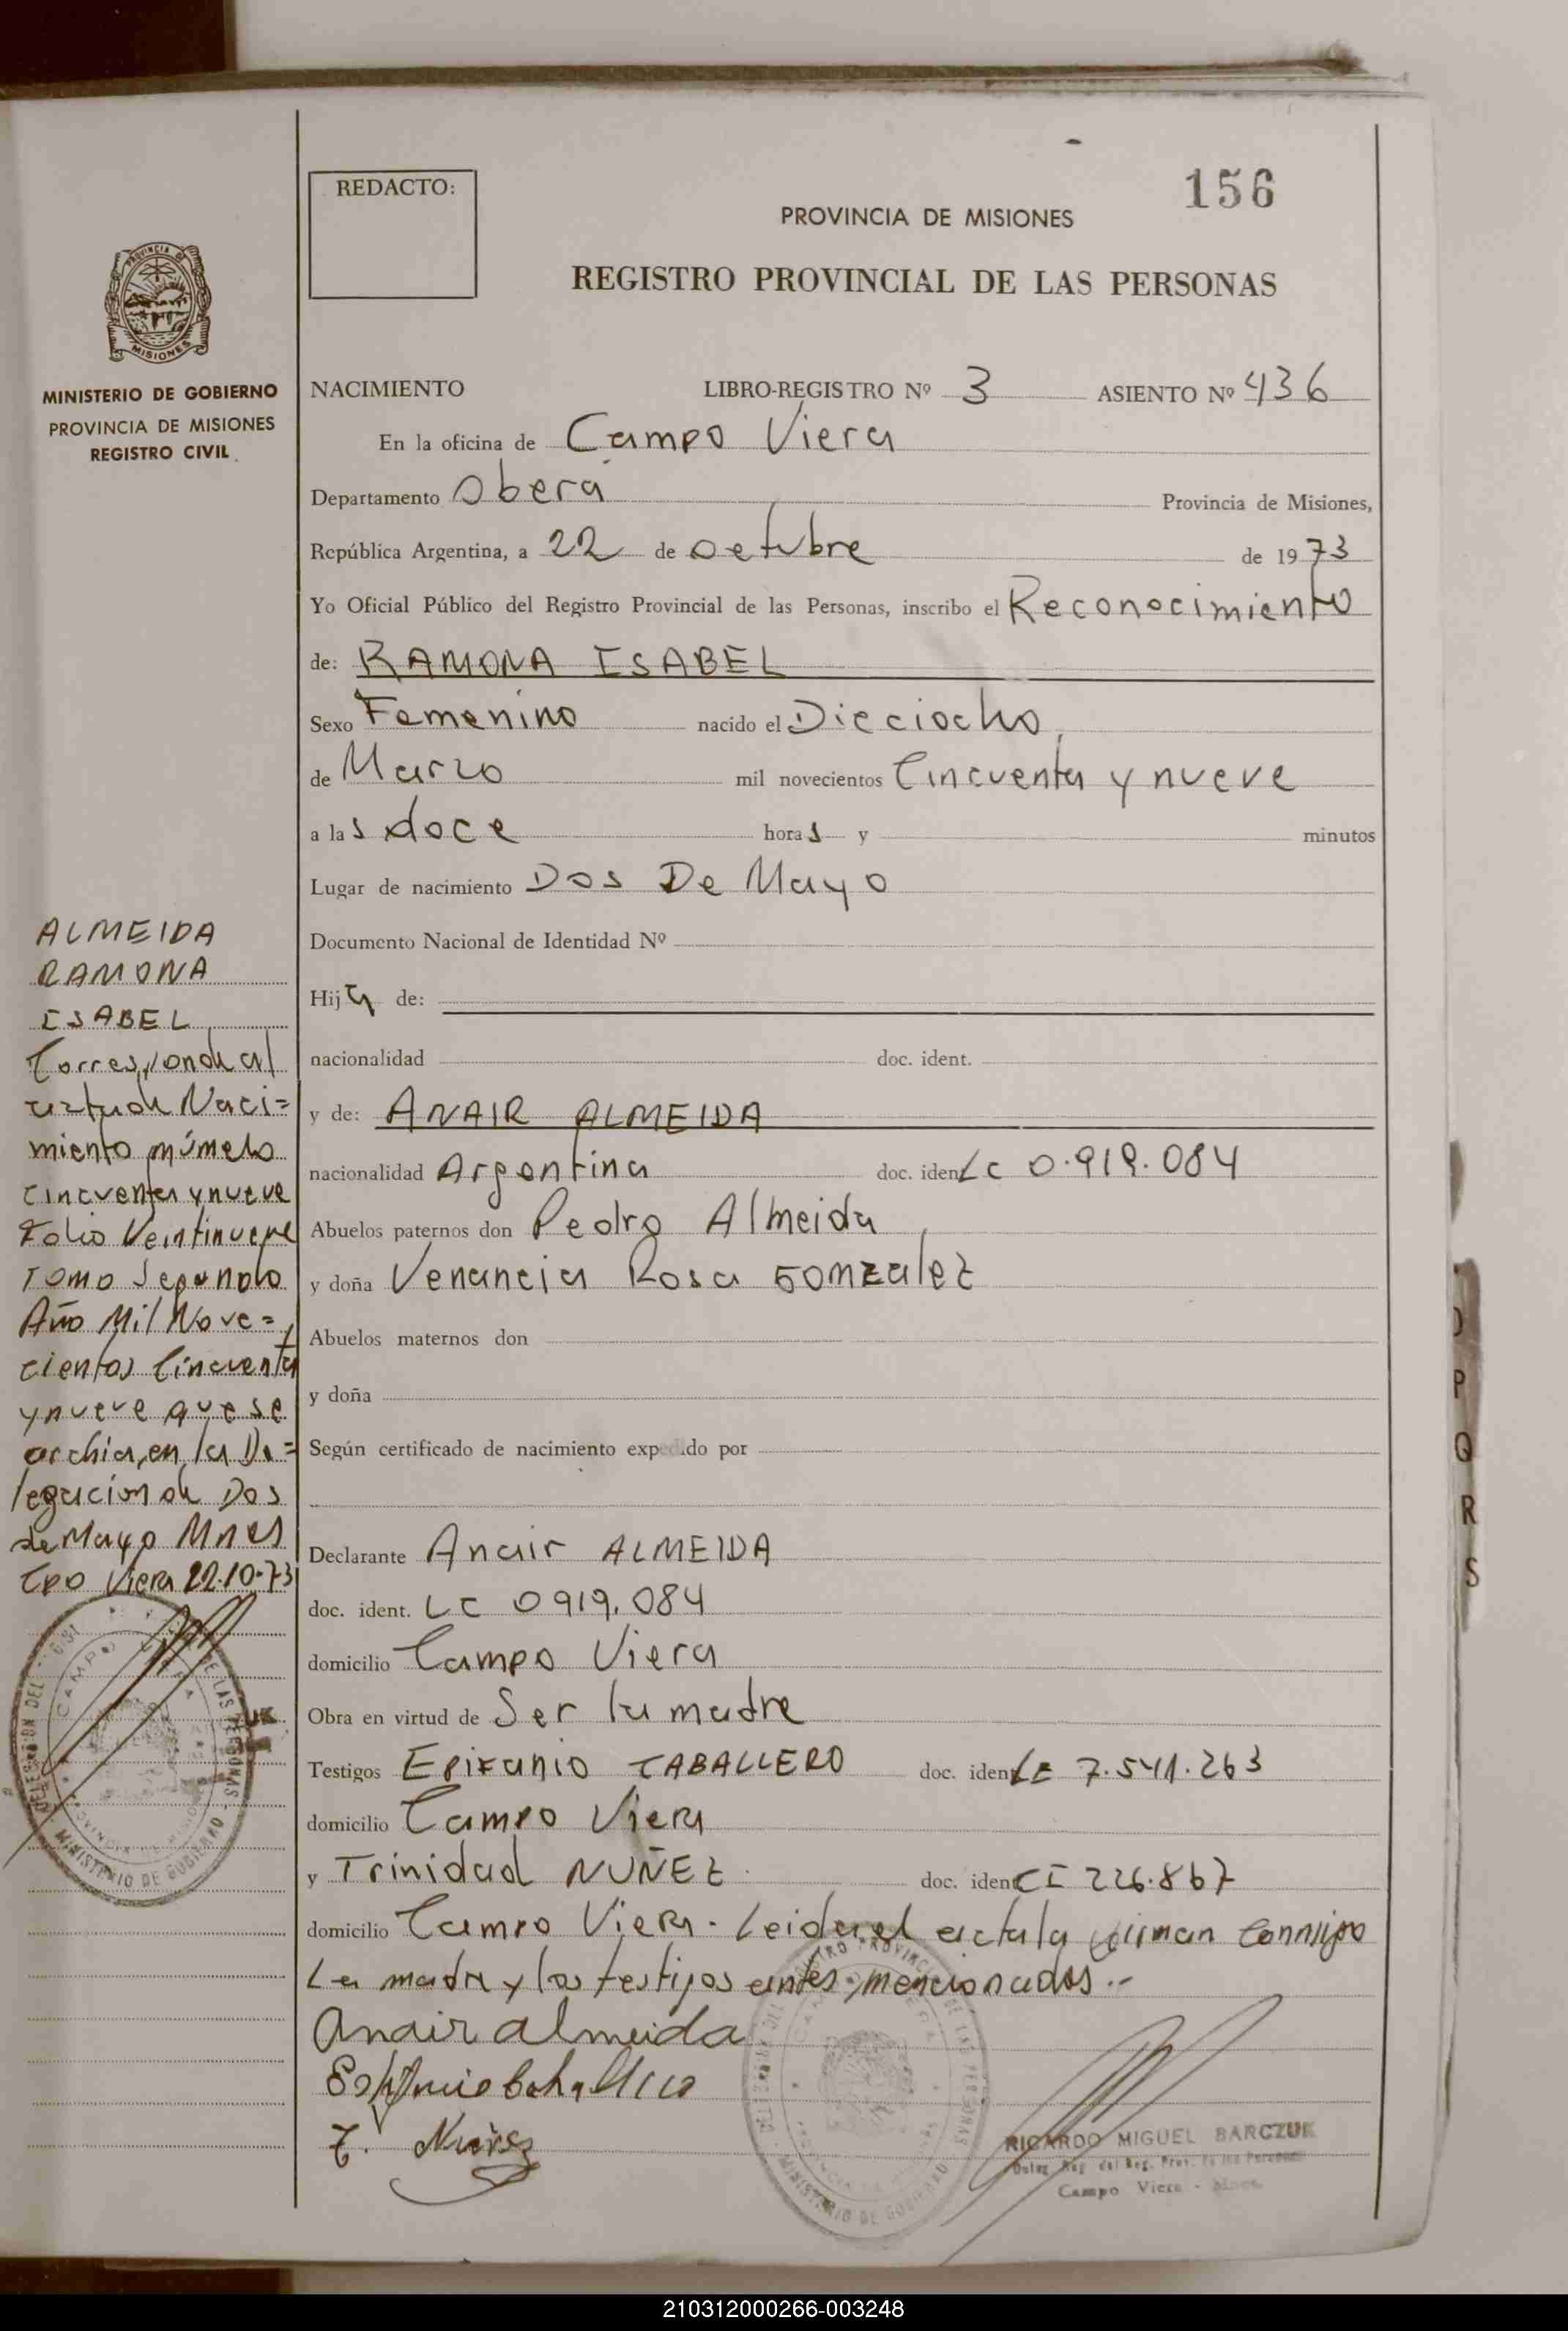 156
REDACTO:
PROVINCIA DE MISIONES
REGISTRO PROVINCIAL DE LAS PERSONAS
MISIONES
MINISTERIO DE GOBIERNO
PROVINCIA DE MISIONES
REGISTRO CIVIL
NACIMIENTO LIBRO-REGISTRO Nº 3 ASIENTO Nº 436
En la oficina de Campo Viera
Departamento Oberá Provincia de Misiones,
República Argentina, a 22 de Octubre de 1973
Yo Oficial Público del Registro Provincial de las Personas, inscribo el Reconocimiento
de: RAMONA ISABEL
Sexo Femenino nacido el Dieciocho
de Marzo mil novecientos Cincuenta y nueve
a las doce horas y minutos
Lugar de nacimiento Dos De Mayo
Documento Nacional de Identidad Nº
Hija de:
nacionalidad doc. ident.
y de: ANAIR ALMEIDA
nacionalidad Argentina doc. iden LC 0.919.084
Abuelos paternos don Pedro Almeida
y doña Venancia Rosa GONZalez
Abuelos maternos don
y doña
Según certificado de nacimiento expedido por
Declarante Anair ALMEIDA
doc. ident. LC 0919.084
domicilio Campo Viera
Obra en virtud de Ser la madre
Testigos EPIFANIO CABALLERO doc. iden LE 7.541.263
domicilio Campo Viera
y Trinidad NUÑEZ doc. iden CI 226.867
domicilio Campo Viera. Leida el acta la firman conmigo
La madre y los testigos antes mencionados.-
Anair Almeida
T. Nuñez
RICARDO MIGUEL BARCZUK
Campo Viera - Mnes.
ALMEIDA
RAMONA
ISABEL
Corresponde al
acta de Naci=
miento número
cincuenta y nueve
Folio Veintinueve
Tomo Segundo
Año Mil Nove=
cientos Cincuenta
y nueve que se
archiva en la De=
legación de Dos
de Mayo Mnes
Cpo Viera 22.10.73
CAMPO VIERA
DE LAS PERSONAS
MINISTERIO DE GOBIERNO
P
Q
R
S
210312000266-003248